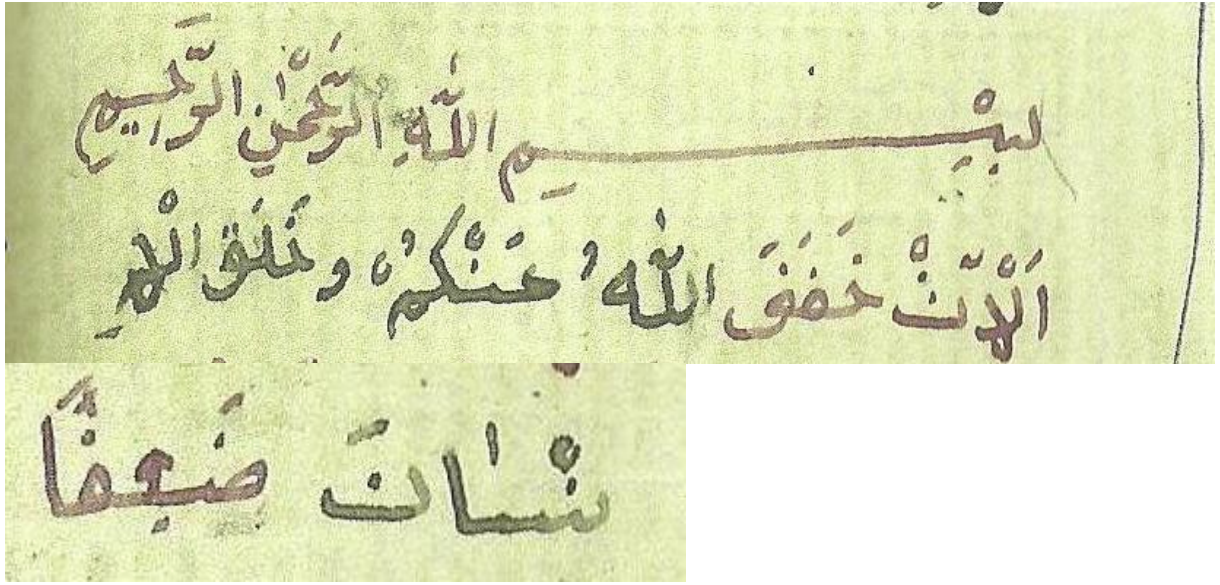 بِسْــــــمِ اللّٰهِ الرَّحْمٰنِ الرَّحِيمِ
اَلْاٰنَ خَفَفَ اللّٰهُ عَنْكُمْ وخَلَقَ الْاِ
نْسَانَ ضَعِفًا